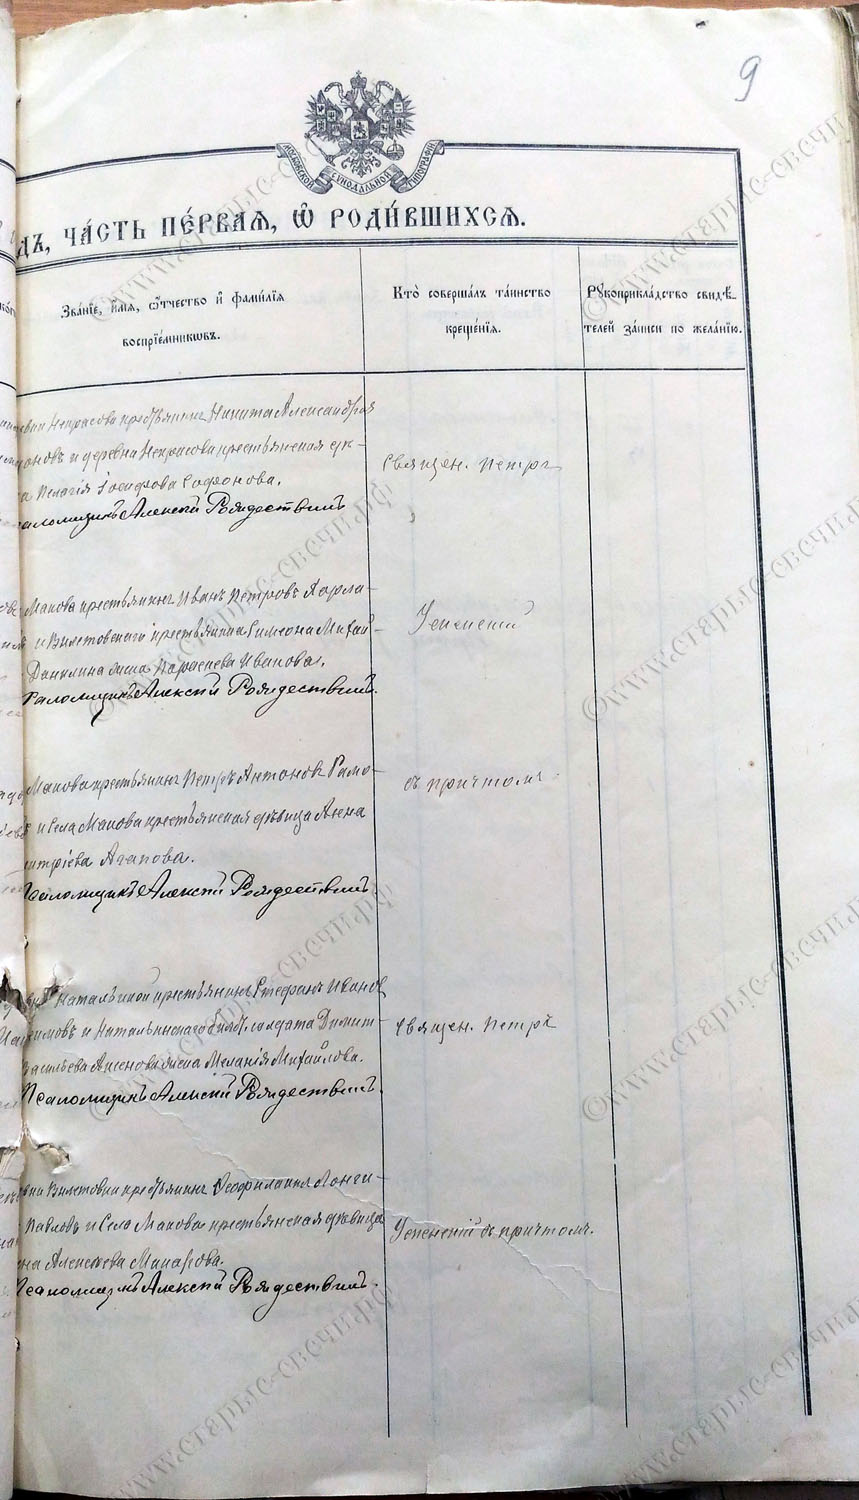 9
МОСКОВСКОЙ СУНОДАЛЬНОЙ ТИПОГРАФІИ
дъ, ча́сть пе́рваѧ, ѡ҆ роди́вшихсѧ.
Зва́нїе, и҆́мѧ, ѻ҆́тчество и҆ фами́лїѧ
воспрїе́мникѡвъ.
Кто̀ соверша́лъ та́инство
креще́нїѧ.
Рꙋкоприкла́дство свидѣ́-
телей за́писи по жела́нїю.
Некрасова крестьянинъ Никита Александров
оновъ и деревни Некрасова крестьянская дѣ-
а Пелагія Іосифова Софонова.
саломщикъ Алексій Рождествинъ
Священ. Петръ
Макова крестьянинъ Иванъ Петровъ Харла-
и Вилтовскаго крестьянина Симеона Михай-
Данилина жена Параскева Иванова.
Псаломщикъ Алексій Рождествинъ.
Успенскій
Макова крестьянинъ Петръ Антоновъ Рамо-
и Села Макова крестьянская дѣвица Анна
митріева Агапова.
Псаломщикъ Алексій Рождествинъ.
съ причтомъ
Натальиной крестьянинъ Стефанъ Иванов
симовъ и Натальинскаго солдата Димит-
Васильева Аксенова жена Меланія Михайлова.
Псаломщикъ Алексій Рождествинъ.
Священ. Петръ
вни Вилтовки крестьянинъ Ѳеофилактъ Лонги-
Павловъ и Села Макова крестьянская дѣвица
на Алексѣева Макарова.
Псаломщикъ Алексій Рождествинъ.
Успенскій съ причтомъ.
©www.старые-свечи.рф